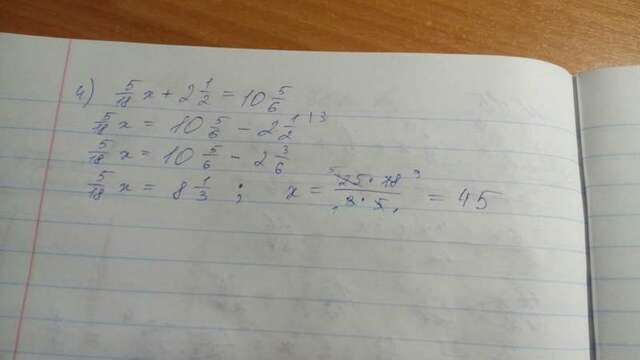 4) 5/18 x + 2 1/2 = 10 5/6
5/18 x = 10 5/6 - 2 1/2 |3
5/18 x = 10 5/6 - 2 3/6
5/18 x = 8 1/3 ; x = 25 · 18 / 3 · 5 = 45